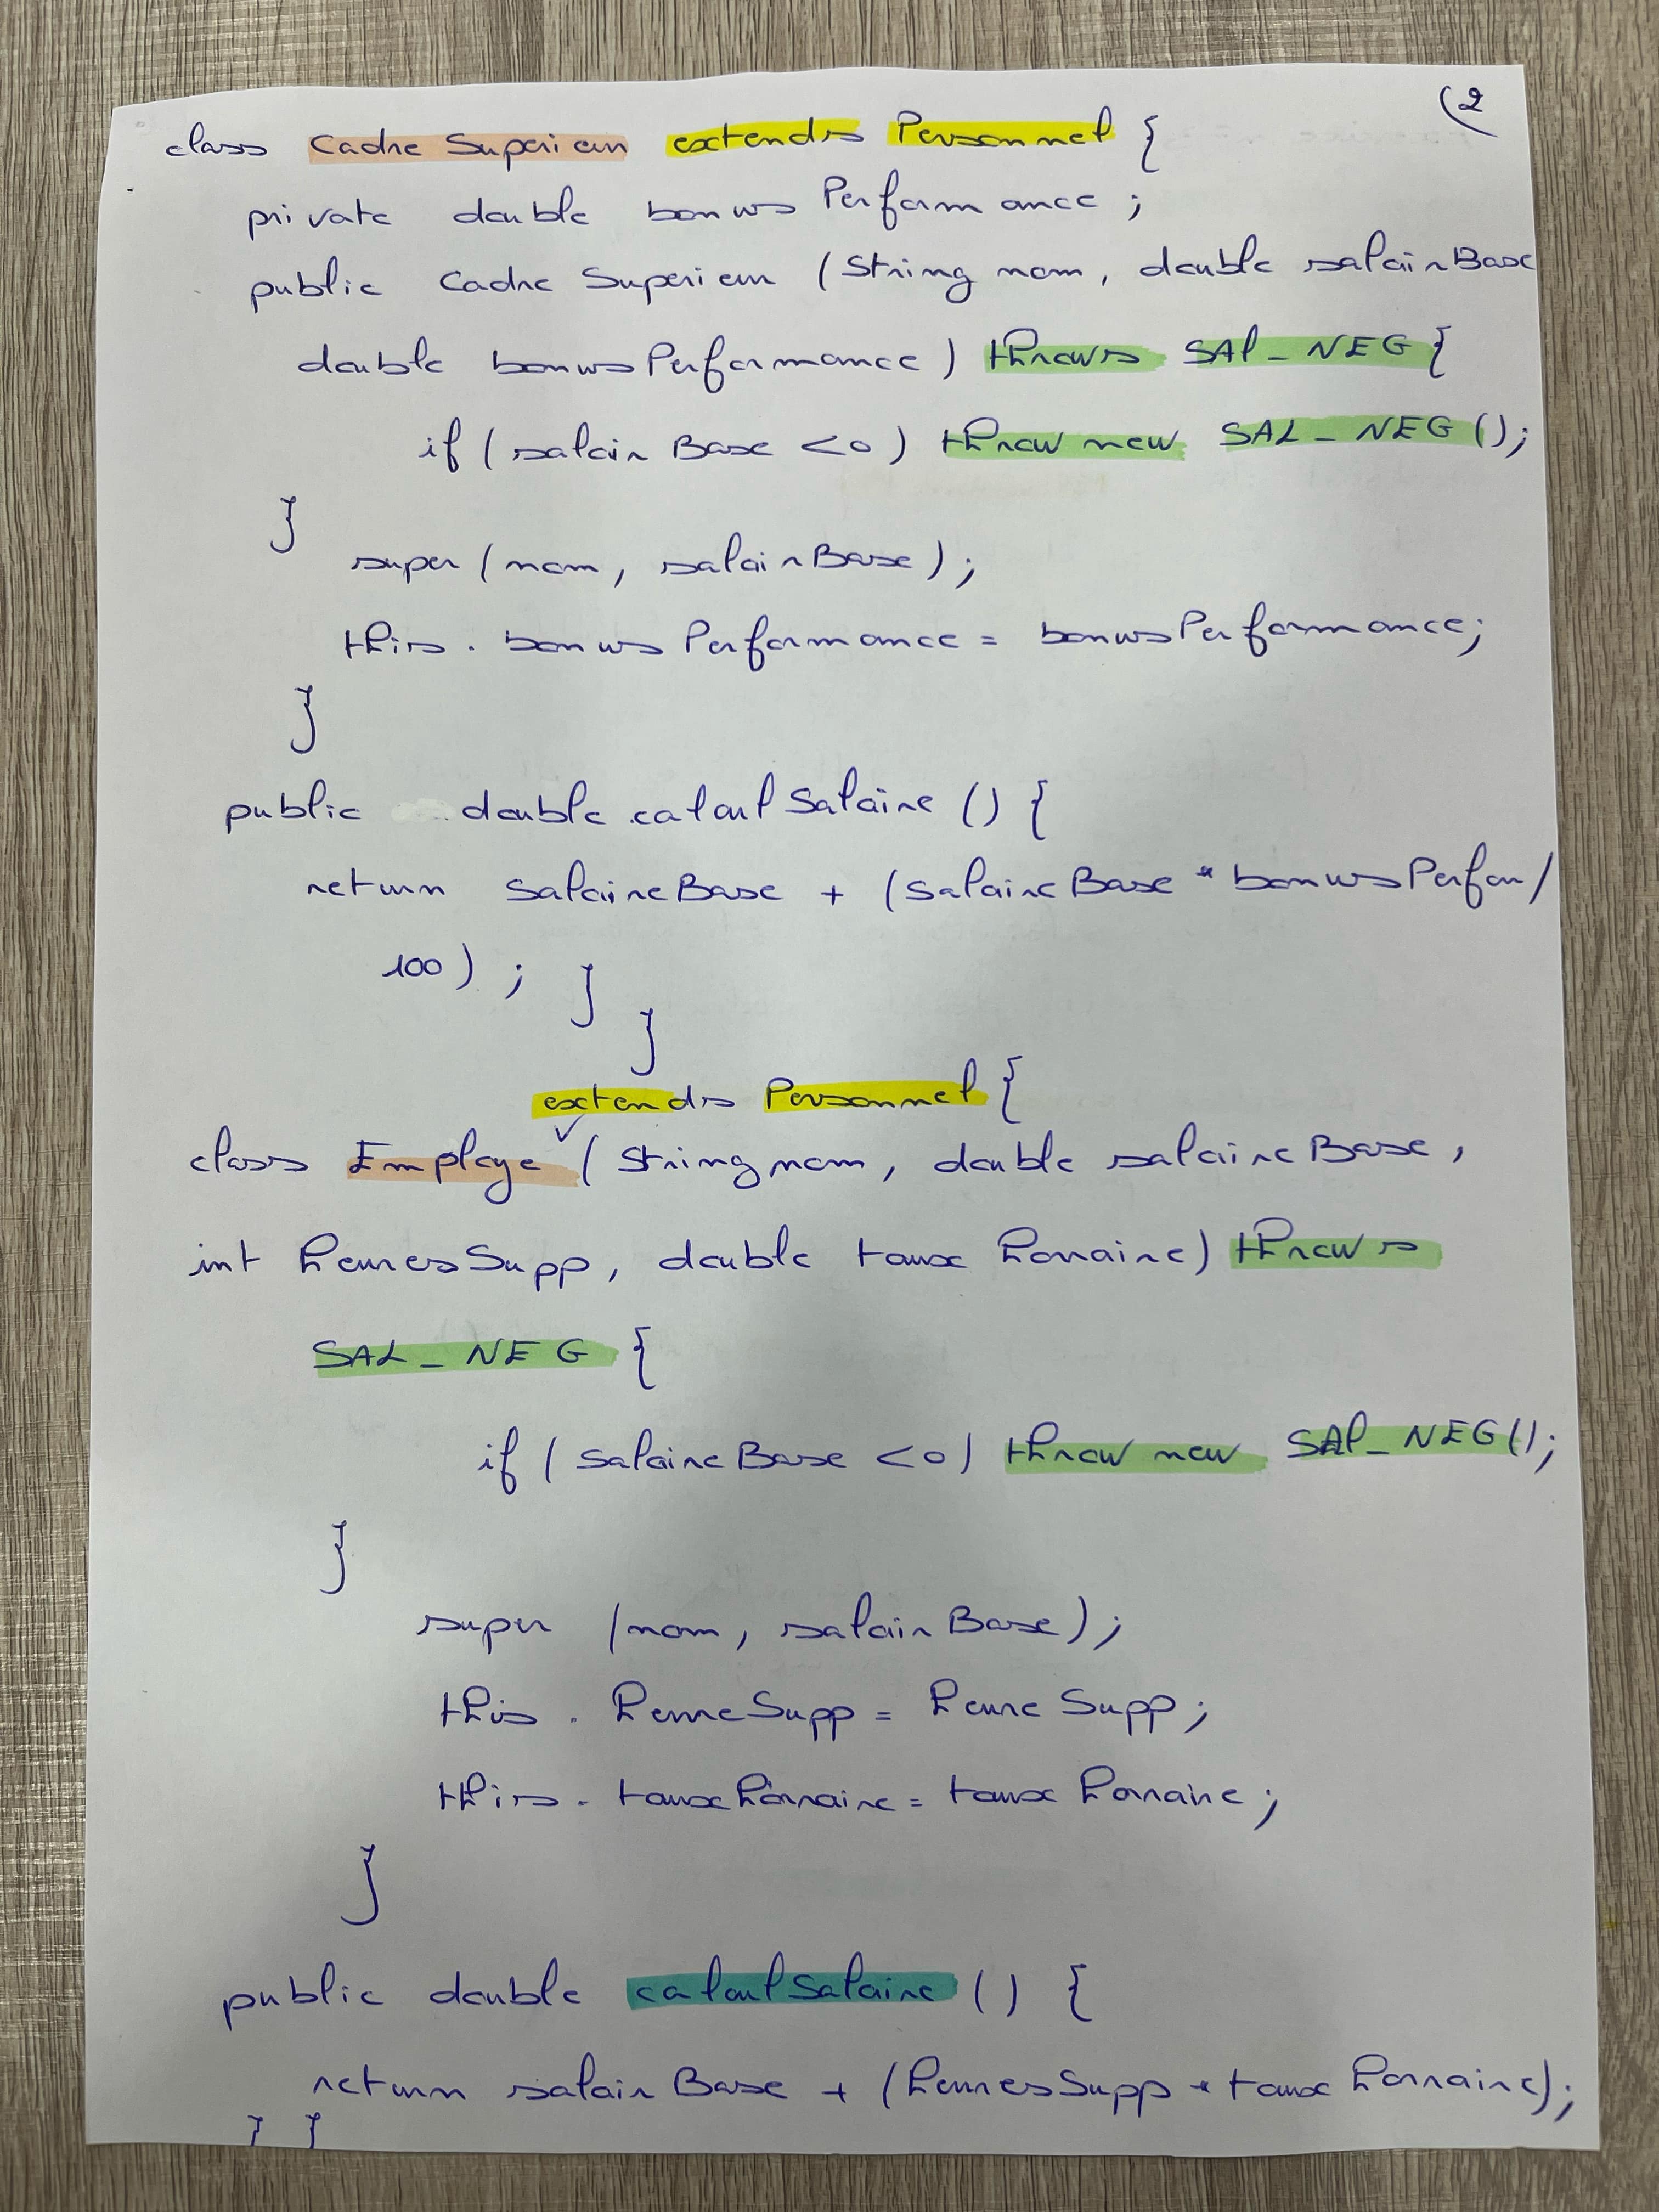 (2
class Cadre Superieur extends Personnel {
private double bonus Performance ;
public Cadre Superieur (String nom, double salairBase
double bonusPerformance) throws SAL_NEG {
if ( salair Base <0 ) throw new SAL_NEG ();
}
super (nom, salairBase) ;
this . bonus Performance = bonusPerformance;
}
public double calculSalaire () {
return SalaireBase + (salaireBase * bonusPerfor/
100) ; }
}
extends Personnel {
class Employe ✓ (String nom, double salaireBase,
int heuresSupp, double taux horraire) throws
SAL_NEG {
if ( SalaireBase <0) throw new SAL_NEG();
}
super (nom, salairBase) ;
this . heureSupp = heure Supp;
this . tauxhorraire = taux horraire ;
}
public double calculSalaire () {
return salair Base + (heuresSupp * taux horraire);
} }